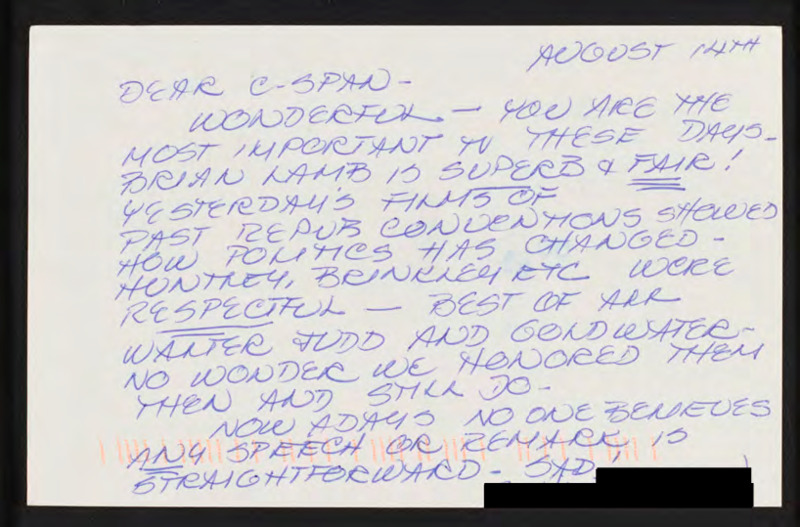 AUGUST 14TH
DEAR C-SPAN-
WONDERFUL - YOU ARE THE
MOST IMPORTANT TV THESE DAYS-
BRIAN LAMB IS SUPERB & FAIR!
YESTERDAY'S FILMS OF
PAST REPUB CONVENTIONS SHOWED
HOW POLITICS HAS CHANGED-
HUNTLEY, BRINKLEY ETC WERE
RESPECTFUL - BEST OF ALL
WALTER JUDD AND GOLDWATER-
NO WONDER WE HONORED THEM
THEN AND STILL DO-
NOW ADAYS NO ONE BELIEVES
ANY SPEECH OR REMARK IS
STRAIGHTFORWARD- SAD!